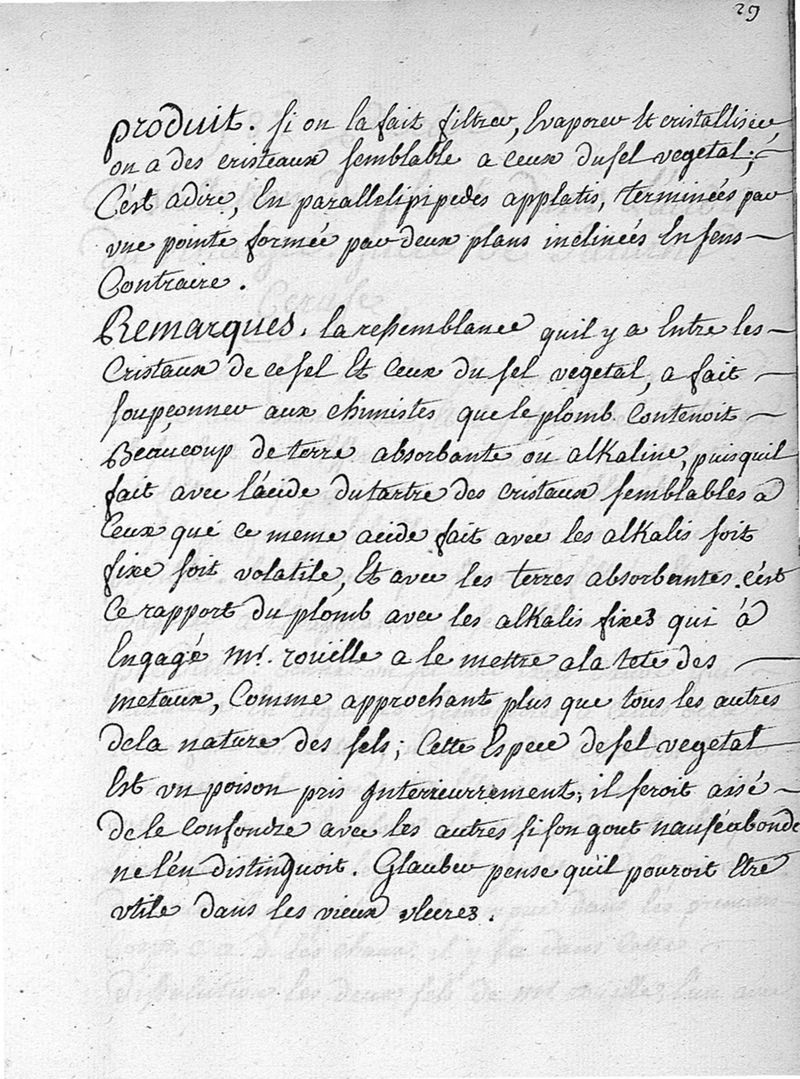 29
produit. si on la fait filtrer, Evaporer Et cristalliser,
on a des cristeaux semblable a ceux du sel vegetal;
C'est adire, En parallelipipedes applatis, terminées par
vne pointe formée par deux plans inclineés En sens
Contraire.
Remarques. la ressemblance quil y a Entre les
Cristaux de ce sel Et Ceux du sel vegetal, a fait
soupçonner aux chimistes que le plomb Contenoit
Beaucoup de terre absorbante ou alkaline, puisquil
fait avec l'acide du tartre des cristaux semblables a
Ceux que ce meme acide fait avec les alkalis soit
fixe soit volatile, Et avec les terres absorbantes. c'est
Ce rapport du plomb avec les alkalis fixes qui a
Engagé mr. rouille a le mettre a la tete des
metaux, Comme approchant plus que tous les autres
dela nature des sels; Cette Espece de sel vegetal
Est vn poison pris Interieurrement; il seroit aisé
de le Confondre avec les autres si son gout nauséabonde
ne l'en distinquoit. Glauber pense qu'il pouroit Etre
vtile dans les vieux vlceres.